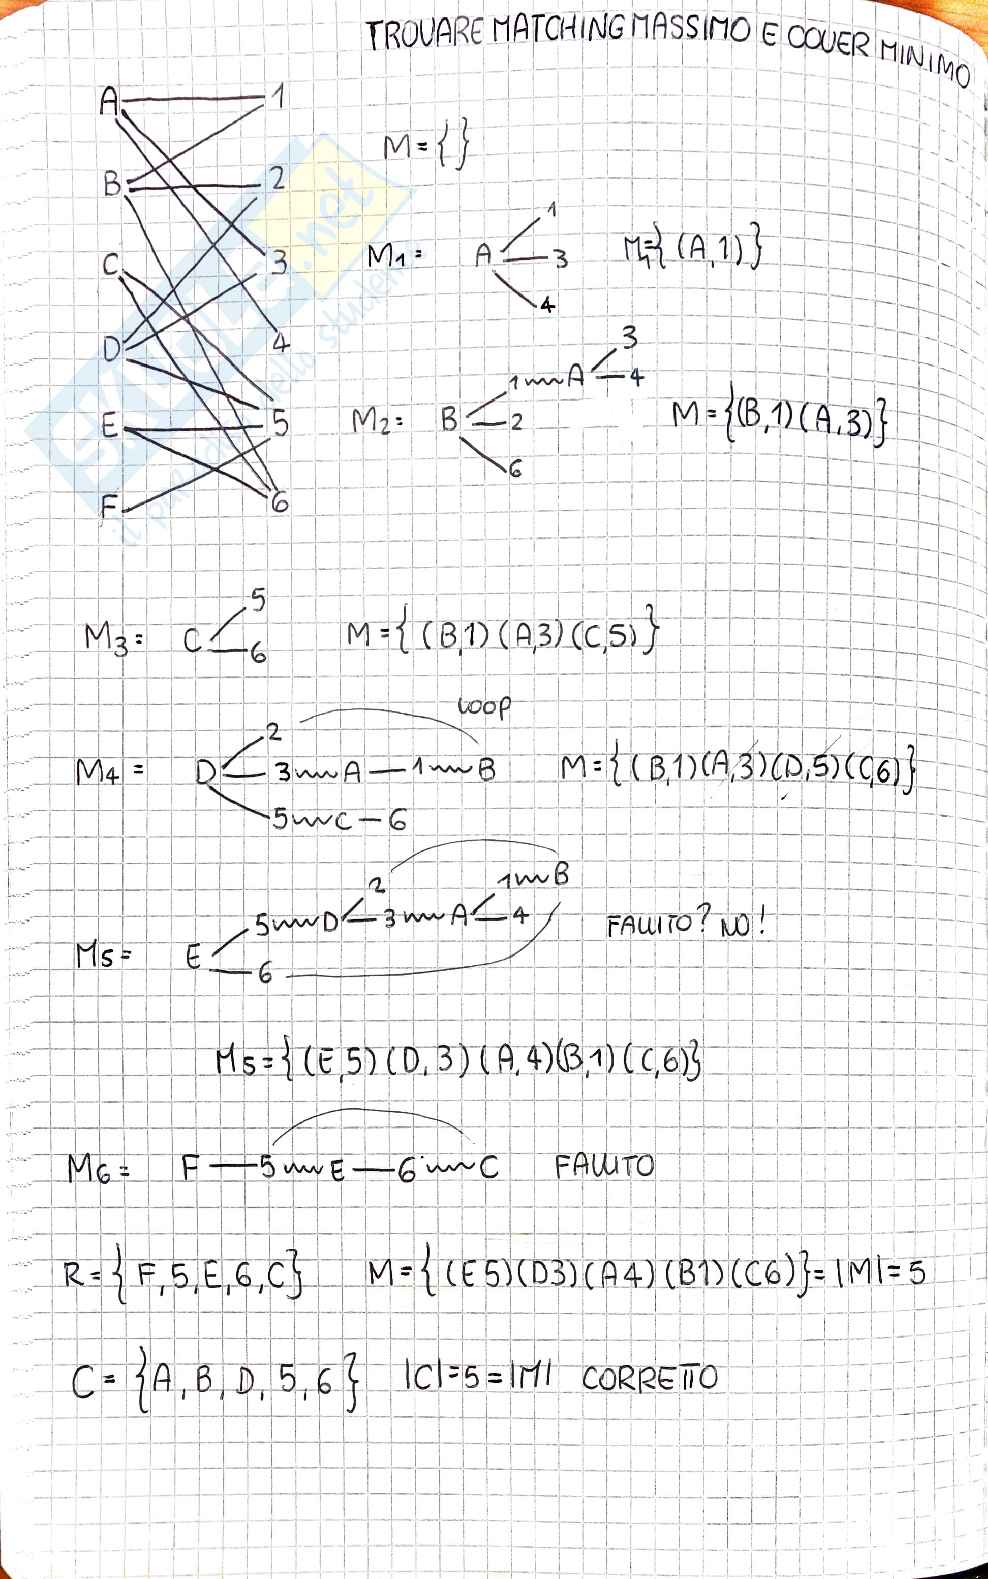 TROVARE MATCHING MASSIMO E COVER MINIMO
A 1
M={}
B 2
1
M1= A 3 M1={(A,1)}
4
C 3
D 4
3
1 A 4
M2= B 2 M={(B,1)(A,3)}
6
E 5
F 6
5
M3= C 6 M={(B,1)(A,3)(C,5)}
LOOP
2
M4= D 3 A 1 B M={(B,1)(A,3)(D,5)(C,6)}
5 C 6
1 B
2
5 D 3 A 4 FALLITO? NO!
M5= E
6
M5={(E,5)(D,3)(A,4)(B,1)(C,6)}
M6= F 5 E 6 C FALLITO
R={F,5,E,6,C} M={(E5)(D3)(A4)(B1)(C6)}=|M|=5
C={A,B,D,5,6} |C|=5=|M| CORRETTO
SKUOLA.net